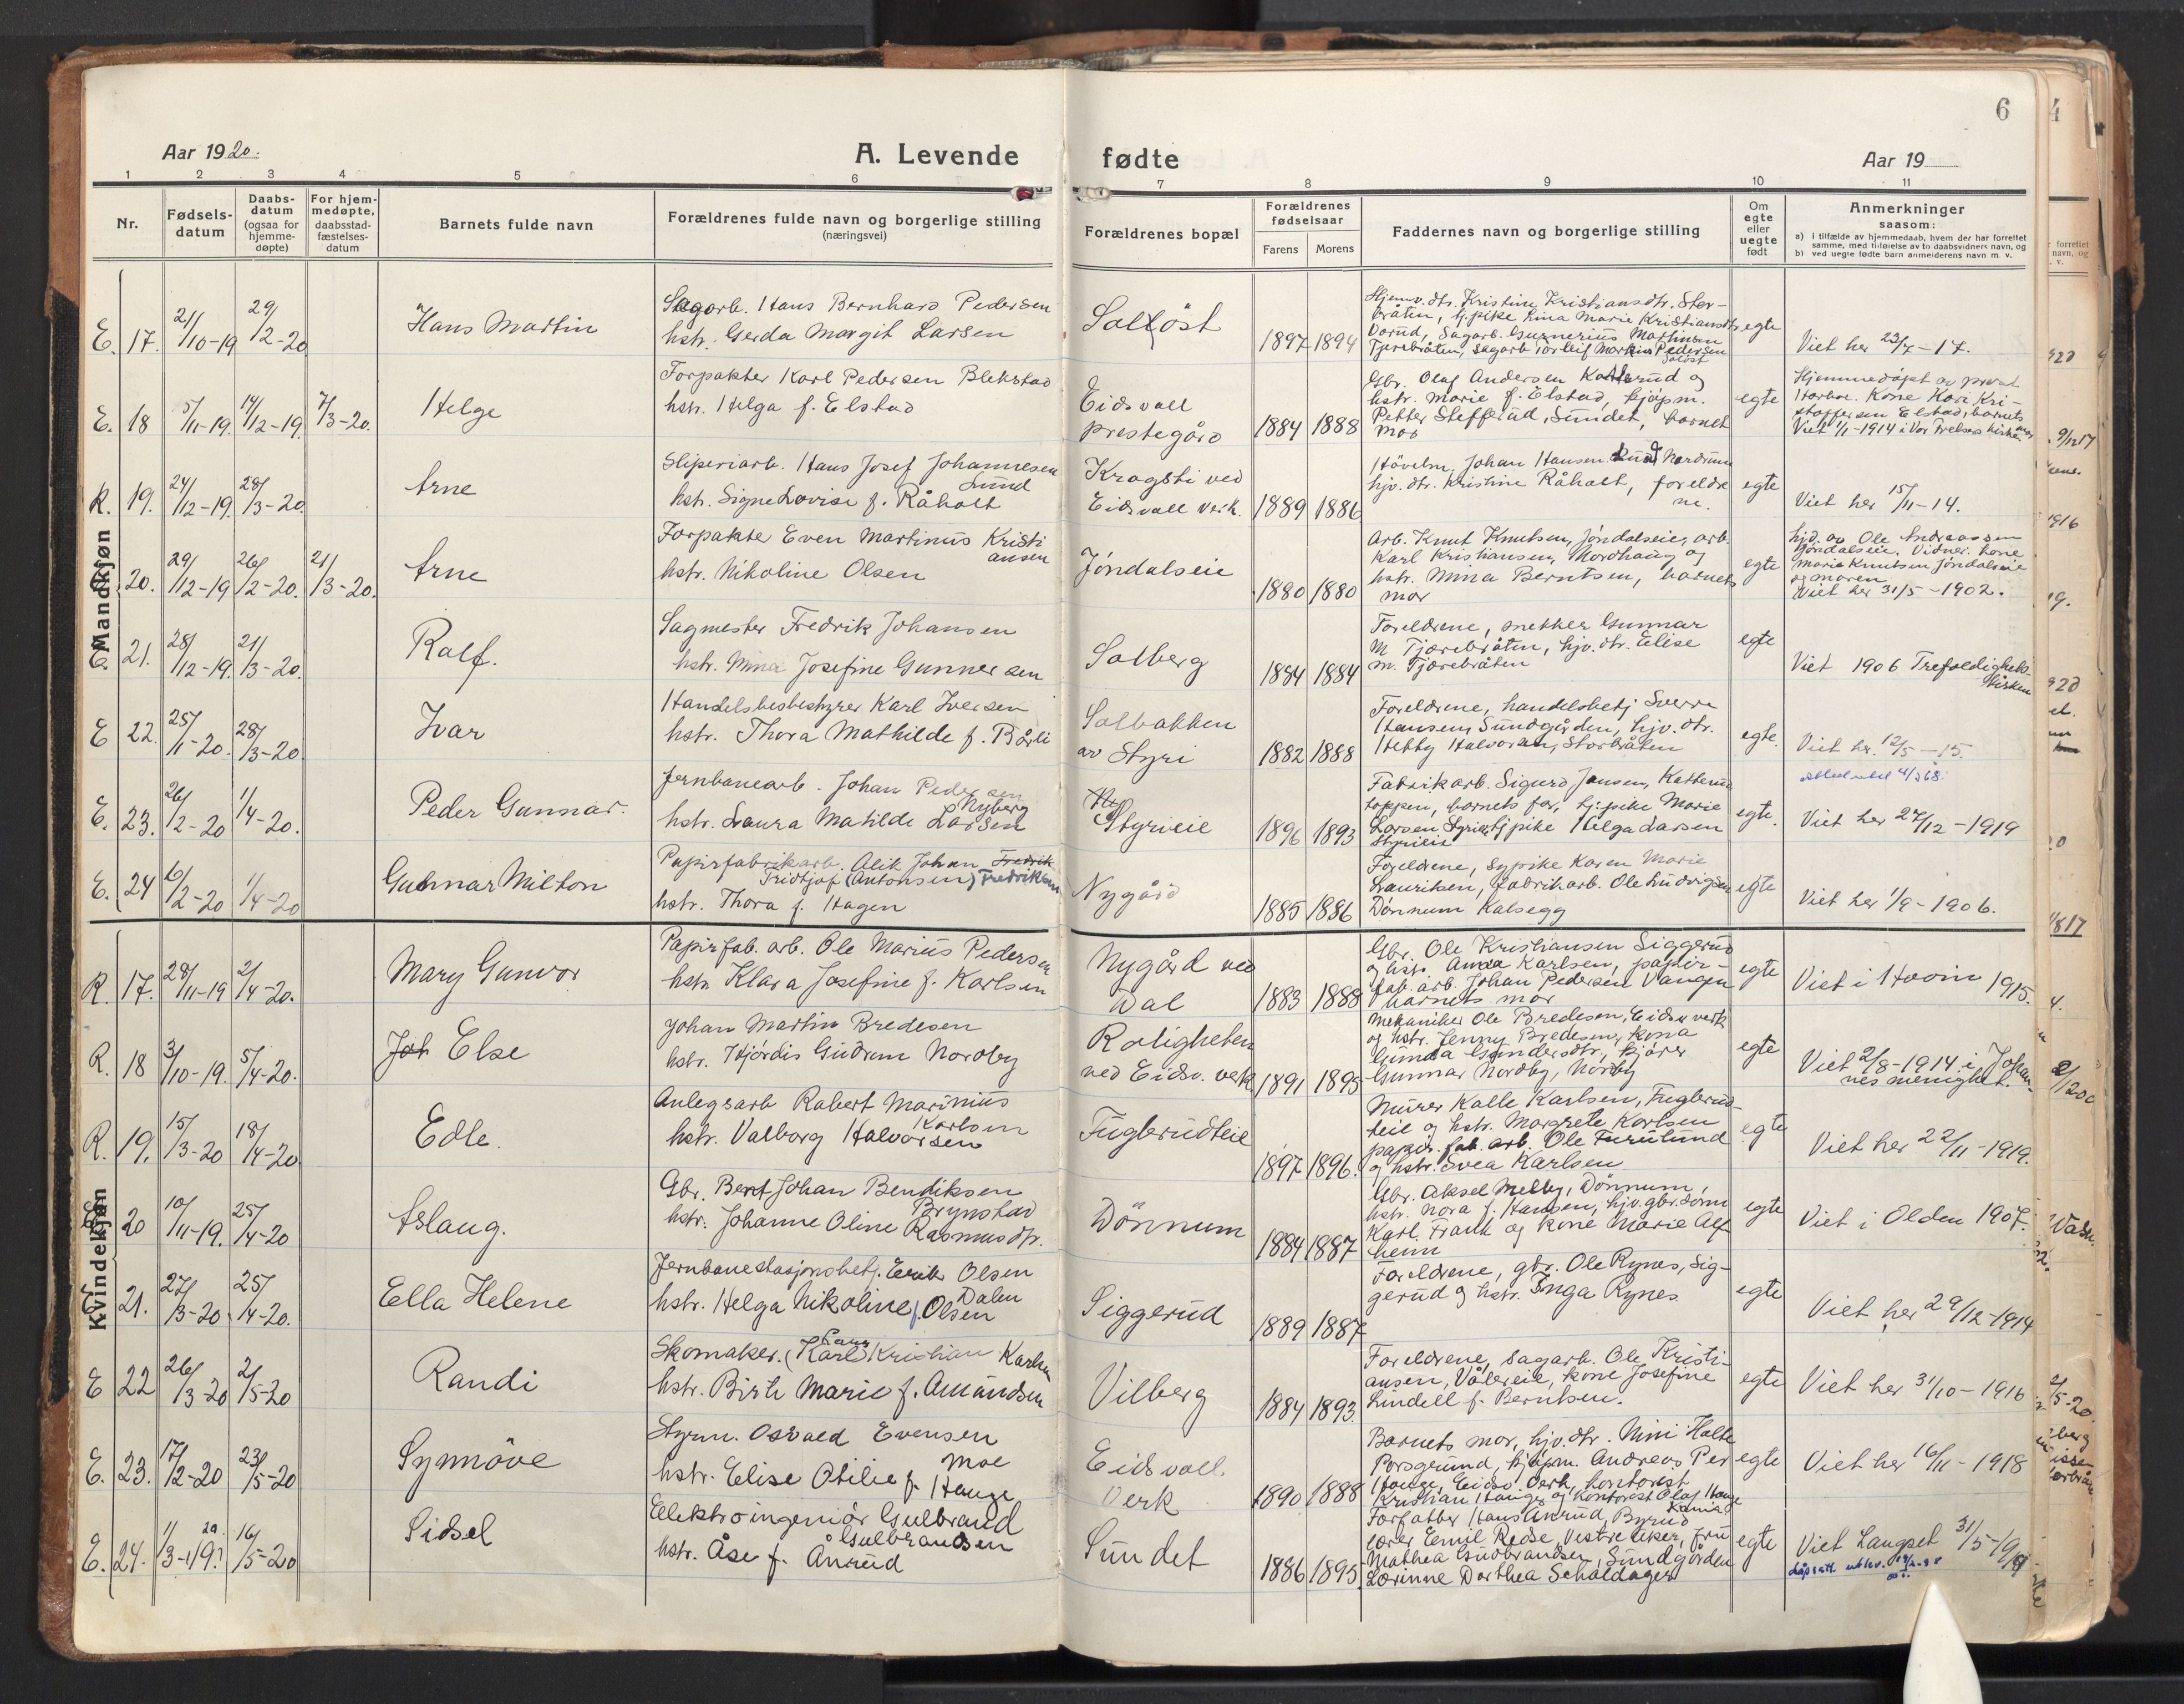 6
Aar 1920.
A. Levende fødte
Aar 19
1 2 3 4 5 6 7 8 9 10 11
Nr.
Fødsels-
datum
Daabs-
datum
(ogsaa for
hjemme-
døpte)
For hjem-
medøpte,
daabsstad-
fæstelses-
datum
Barnets fulde navn
Forældrenes fulde navn og borgerlige stilling
(næringsvei)
Forældrenes bopæl
Forældrenes
fødselsaar
Farens Morens
Faddernes navn og borgerlige stilling
Om
egte
eller
uegte
født
Anmerkninger
saasom:
a) i tilfælde av hjemmedaab, hvem der har forrettet
samme, med tilføielse av to daabsvidners navn, og
b) ved uegte fødte barn anmelderens navn m. v.
Mandkjøn
E. 17. 21/10-19 29/2-20 Hans Martin
Sagarb. Hans Bernhard Pedersen
hstr. Gerda Margit Larsen
Solløst
1897 1894
Hjemv. dtr. Kristine Kristiansdtr. Stor-
bråten, tj.pike Lina Marie Kristiansdtr.
Dorud, Sagarb. Gunnerius Martinsen
Tjærebråten, sagarb. Torleif Markus Pedersen
Soløst
egte
Viet her 23/7-17.
E. 18 5/11-19. 14/12-19. 7/3-20. Helge
Forpakter Karl Pedersen Blekstad
hstr. Helga f. Elstad
Eidsvoll
prestegård
1884 1888
Gbr. Olaf Andersen Katterud og
hstr. Marie f. Elstad, kjøpm.
Petter Stefferud, Sundet, barnets
mor
egte
Hjemmedøpt av prest
Kone Kari Kri-
stoffersen Elstad, barnets mor
Viet 1/1-1914 i Vor Frelsers kirke.
R. 19. 24/12-19. 28/3-20. Arne
Sliperiarb. Hans Josef Johannesen
Lund
hstr. Signe Lovise f. Råholt
Kragsti ved
Eidsvoll verk.
1889 1886
Høvelm. Johan Hansen Lund Nordrum
hjv. dtr. Kristine Råholt, foreldre
ne.
egte
Viet her 15/11-14.
E. 20. 29/12-19 26/2-20. 21/3-20. Arne
Forpakter Even Martinus Kristi
ansen
hstr. Nikoline Olsen
Jøndalseie
1880 1880
Arb. Knut Knutsen, Jøndalseie, arb.
Karl Kristiansen, Nordhaug og
hstr. Mina Berntsen, barnets
mor
egte
hjd. av Ole Andreassen
Jøndalseie. Vidner: kone
Marie Knutsen Jøndalseie
og moren
Viet her 31/5-1902.
E. 21. 28/12-19. 21/3-20. Ralf.
Sagmester Fredrik Johansen
hstr. Mina Josefine Gunnersen
Solberg
1884 1884
Foreldrene, snekker Gunnar
M Tjærebråten, hjv. dtr. Elise
M. Tjærebråten
egte
Viet 1906 Trefoldigheds-
kirken
E 22. 25/1-20. 28/3-20 Ivar
Handelsbestyrer Karl Iversen
hstr. Thora Mathilde f. Bårli
Solbakken
av Styri
1882 1888
Foreldrene, handelsbetj Sverre
Hansen, Sundgården, hjv. dtr.
Hebby Halvorsen, Storbråten
egte.
Viet her. 12/5-15.
E. 23. 26/2-20 1/4-20. Peder Gunnar.
Jernbanearb. Johan Pedersen
Nyberg
hstr. Laura Matilde Larsen
Styrieie
1896 1893
Fabrikarb. Sigurd Jansen, Katterud
toppen, barnets far, tj:pike Marie
Larsen Styrieie, tj.pike Helga Larsen
Styrieie
egte.
4/3 68.
Viet her 27/12-1919
E. 24 6/2-20 1/4-20 Gunnar Milton
Papirfabrikarb. Alik Johan Fredrik
Fridtjof (Antonsen) Fredriksen
hstr. Thora f. Hagen
Nygård
1885 1886
Foreldrene, sypike Karen Marie
Lauriksen, fabrikarb. Ole Ludvigsen
Dønnum Kalsegg
egte
Viet her 1/9-1906.
Kvindekjøn
R. 17. 28/11-19 2/4-20. Mary Gunvor
Papirfab. arb. Ole Marius Pedersen
hstr. Klara Josefine f. Karlsen
Nygård ved
Dal
1883 1888
Gbr. Ole Kristiansen Siggerud
og hstr. Anna Karlsen, papir-
fab. arb. Johan Pedersen Vangen
barnets mor
egte
Viet i Hovin 1915.
R. 18 3/10-19. 5/4-20. Joh Else
Johan Martin Bredesen
hstr. Hjørdis Gudrun Nordby
Roligheten
ved Eidsv. verk
1891 1895
Mekaniker Ole Bredesen, Eidsv. verk
og hstr. Jenny Bredesen, kona
Gunda Gundersdtr., kjører
Gunnar Nordby, Nordby
egte
Viet 2/8-1914 i Johan-
nes menighet.
R. 19. 15/3-20 18/4-20 Edle.
Anlegsarb Robert Marinius
Karlsen
hstr. Valborg Halvorsen
Fuglerudteie
1897 1896.
Murer Kalle Karlsen, Fuglerud-
teie og hstr. Margrete Karlsen
papir. fab. arb. Ole Furulund
og hstr. Svea Karlsen
egte
Viet her 22/11-1919.
E 20 10/11-19. 25/4-20 Aslaug.
Gbr. Bert Johan Bendiksen
Brynstad
hstr. Johanne Oline Rasmusdtr.
Dønnum
1884 1887
Gbr. Aksel Melby, Dønnum,
hstr. Nora f. Hansen, hjv. gbr. sønn
Karl. Frank og kone Marie Alf
heim
egte
Viet i Olden 1907.
E. 21. 27/3-20 25/4-20. Ella Helene
Jernbanestasjonsbetj. Eerik Olsen
Dalen
hstr. Helga Nikoline f. Olsen
Siggerud
1889 1887
Foreldrene, gbr. Ole Rynes, Sig-
gerud og hstr. Inga Rynes
egte
Viet her 29/12-1914
E 22 26/3-20 2/5-20 Randi
Skomaker. (Karl) Kristian Karlsen
hstr. Birte Marie f. Amundsen
Vilberg
1884 1893.
Foreldrene, sagarb. Ole Kristi-
ansen, Vålereie, kone Josefine
Lindell f. Berntsen.
egte
Viet her 31/10-1916
E. 23. 17/2-20 23/5-20 Synnöve
Styrm. Osvald Evensen
Moe
hstr. Elise Otilie f. Hauge
Eidsvoll
Verk
1890 1888
Barnets mor, hjv. dtr. Mini Holte
Porsgrund, kjøpm. Andreas Per
Hauge, Eidsv. Verk, kontorist
Kristian Hauge og kontorist Olaf Hauge
egte
Viet her 16/11-1918
E. 24. 1/3-19! 20. 16/5-20 Sidsel
Elektroingeniør Gulbrand
Gulbrandsen
hstr. Åse f. Anrud
Sundet
1886 1895.
Forfatter Hans Anrud, Byrud
lærer Emil Redse, Vestre Aker, fru
Mathea Gudbrandsen, Sundgården
Lærinne Dorthea Schaldager
egte
Viet Langset 31/5-1919